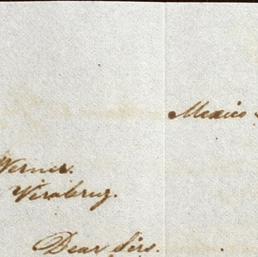 Mexico
Werner.
Verabruz.
Dear Sirs.